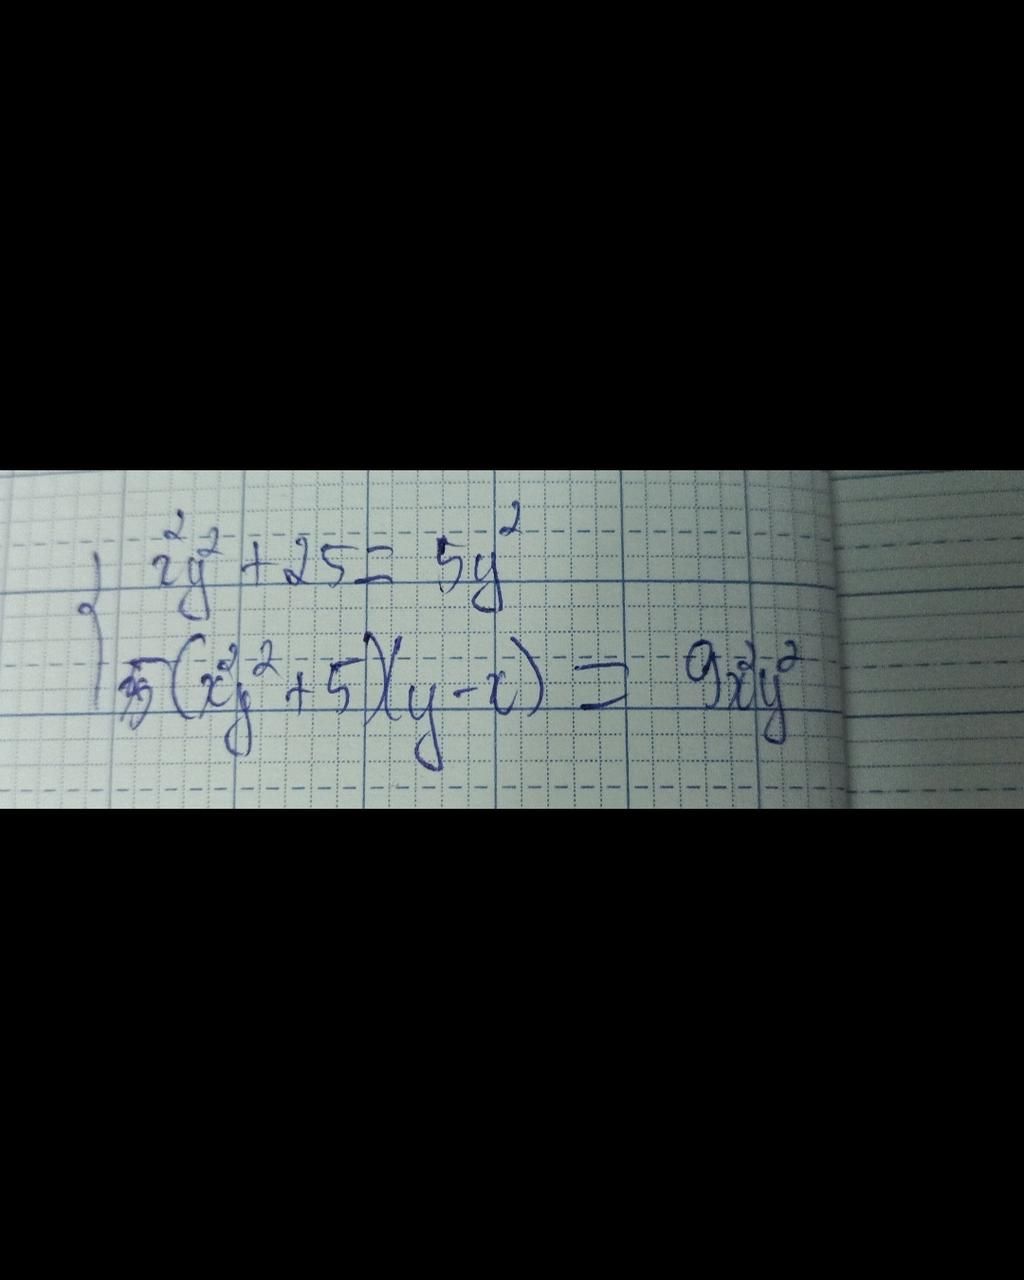 x²y² + 25 = 5y²
5(x²y² + 5)(y - x) = 9x²y²